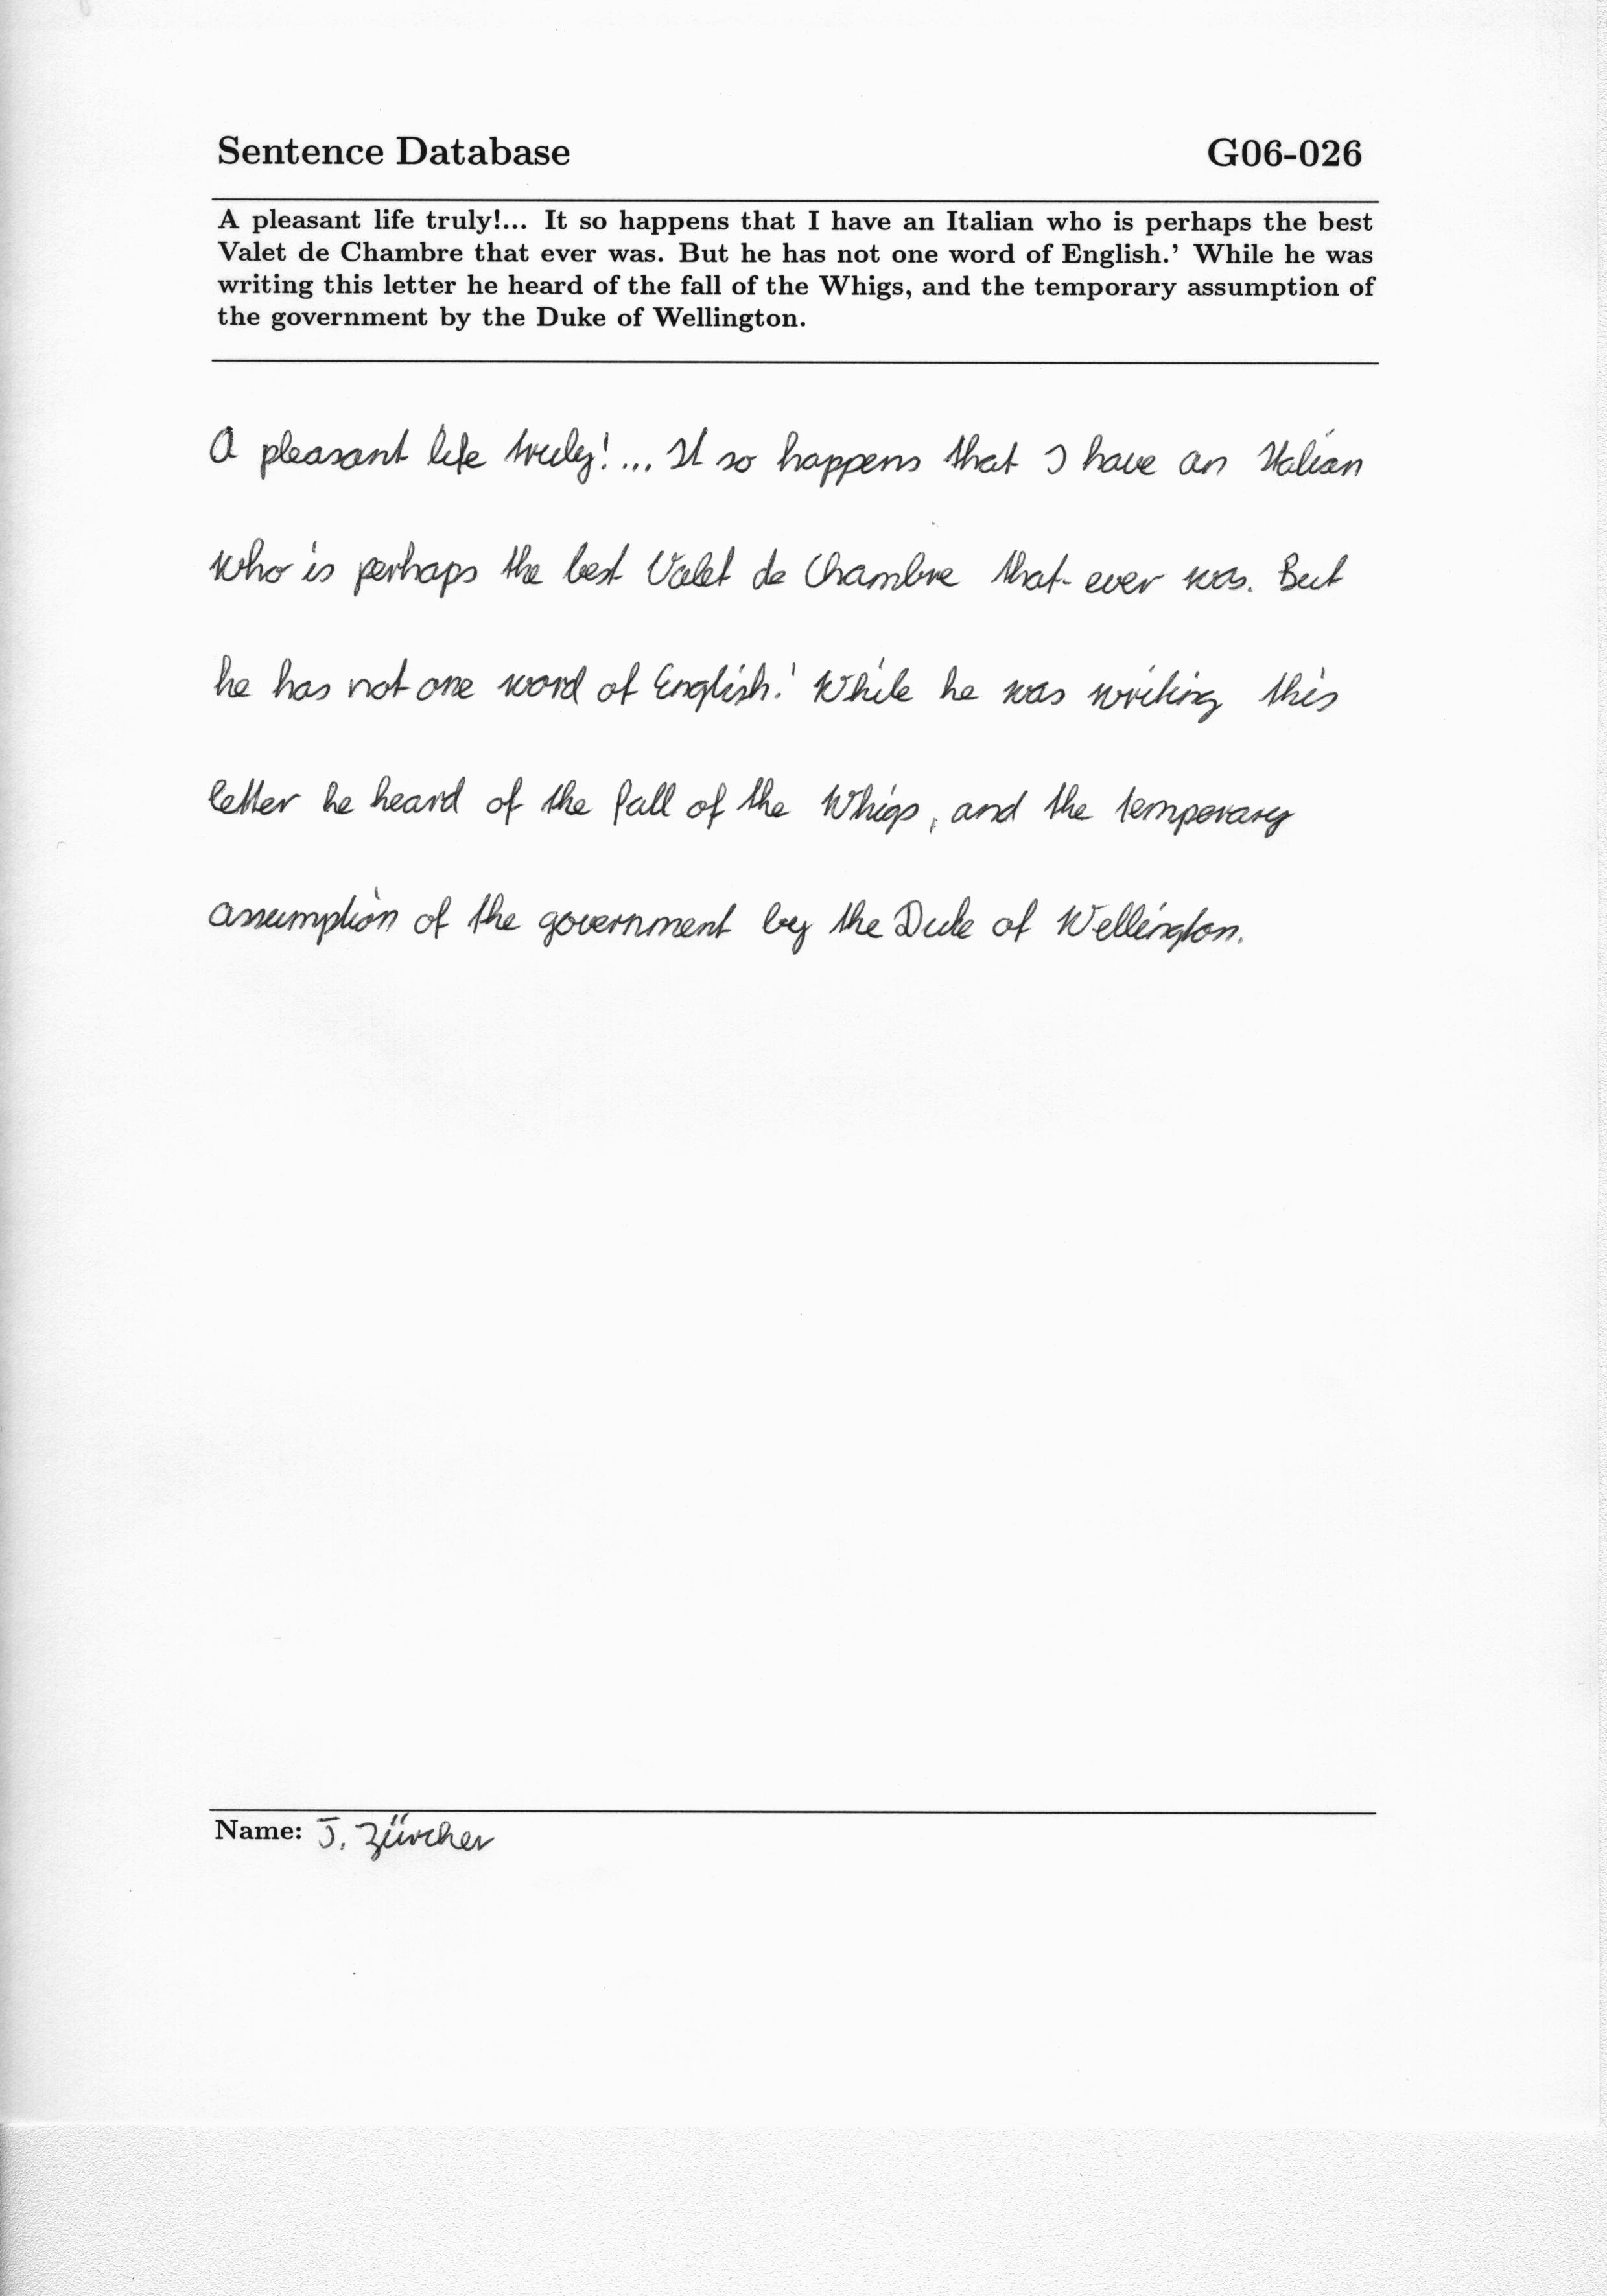 Sentence Database G06-026
A pleasant life truly!... It so happens that I have an Italian who is perhaps the best
Valet de Chambre that ever was. But he has not one word of English.' While he was
writing this letter he heard of the fall of the Whigs, and the temporary assumption of
the government by the Duke of Wellington.
A pleasant life truly!... It so happens that I have an Italian
who is perhaps the best Valet de Chambre that ever was. But
he has not one word of English.' While he was writing this
letter he heard of the fall of the Whigs, and the temporary
assumption of the government by the Duke of Wellington.
Name: J. Zürcher